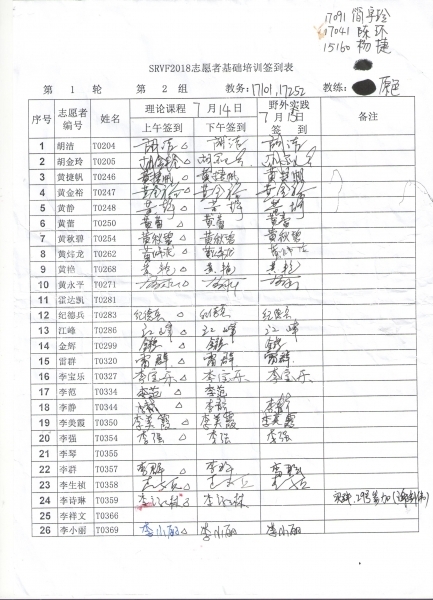 17091
17041 陈环
15160 杨捷
SRVF2018志愿者基础培训签到表
第 1 轮 第 2 组 教务:17101,17252 教练: 原色
序号 志愿者编号 姓名 理论课程 7月14日 野外实践 7月15日 备注
上午签到 下午签到 签到
1 胡洁 T0204 胡洁 △ 胡洁 胡洁
2 胡金玲 T0205 △
3 黄捷帆 T0246 黄捷帆 △ 黄捷帆 黄捷帆
4 黄金裕 T0247 黄金裕 △ 黄金裕 黄金裕
5 黄静 T0248 黄静 △ 黄静 黄静
6 黄蕾 T0250 黄蕾 △ 黄蕾 黄蕾
7 黄秋碧 T0254 黄秋碧 △ 黄秋碧 黄秋碧
8 T0262 △
9 黄艳 T0268 黄艳 △ 黄艳 黄艳
10 黄永平 T0271 △
11 霍达凯 T0281
12 纪德兵 T0283 纪德兵 △ 纪德兵 纪德兵
13 江峰 T0286 江峰 △ 江峰 江峰
14 金辉 T0299 金辉 △ 金辉 金辉
15 雷群 T0320 雷群 △ 雷群 雷群
16 李宝乐 T0327 李宝乐 △ 李宝乐 李宝乐
17 李范 T0334 李范 △ 李范
18 李静 T0344 △ 李静 李静
19 李美霞 T0350 李美霞 △ 李美霞 李美霞
20 李强 T0354 李强 △ 李强 李强
21 李琴 T0355
22 李群 T0357 李群 △ 李群 李群
23 李生桢 T0358 △
24 李诗琳 T0359 李诗琳 △ 李诗琳
25 李祥文 T0366
26 李小丽 T0369 李小丽 △ 李小丽 李小丽